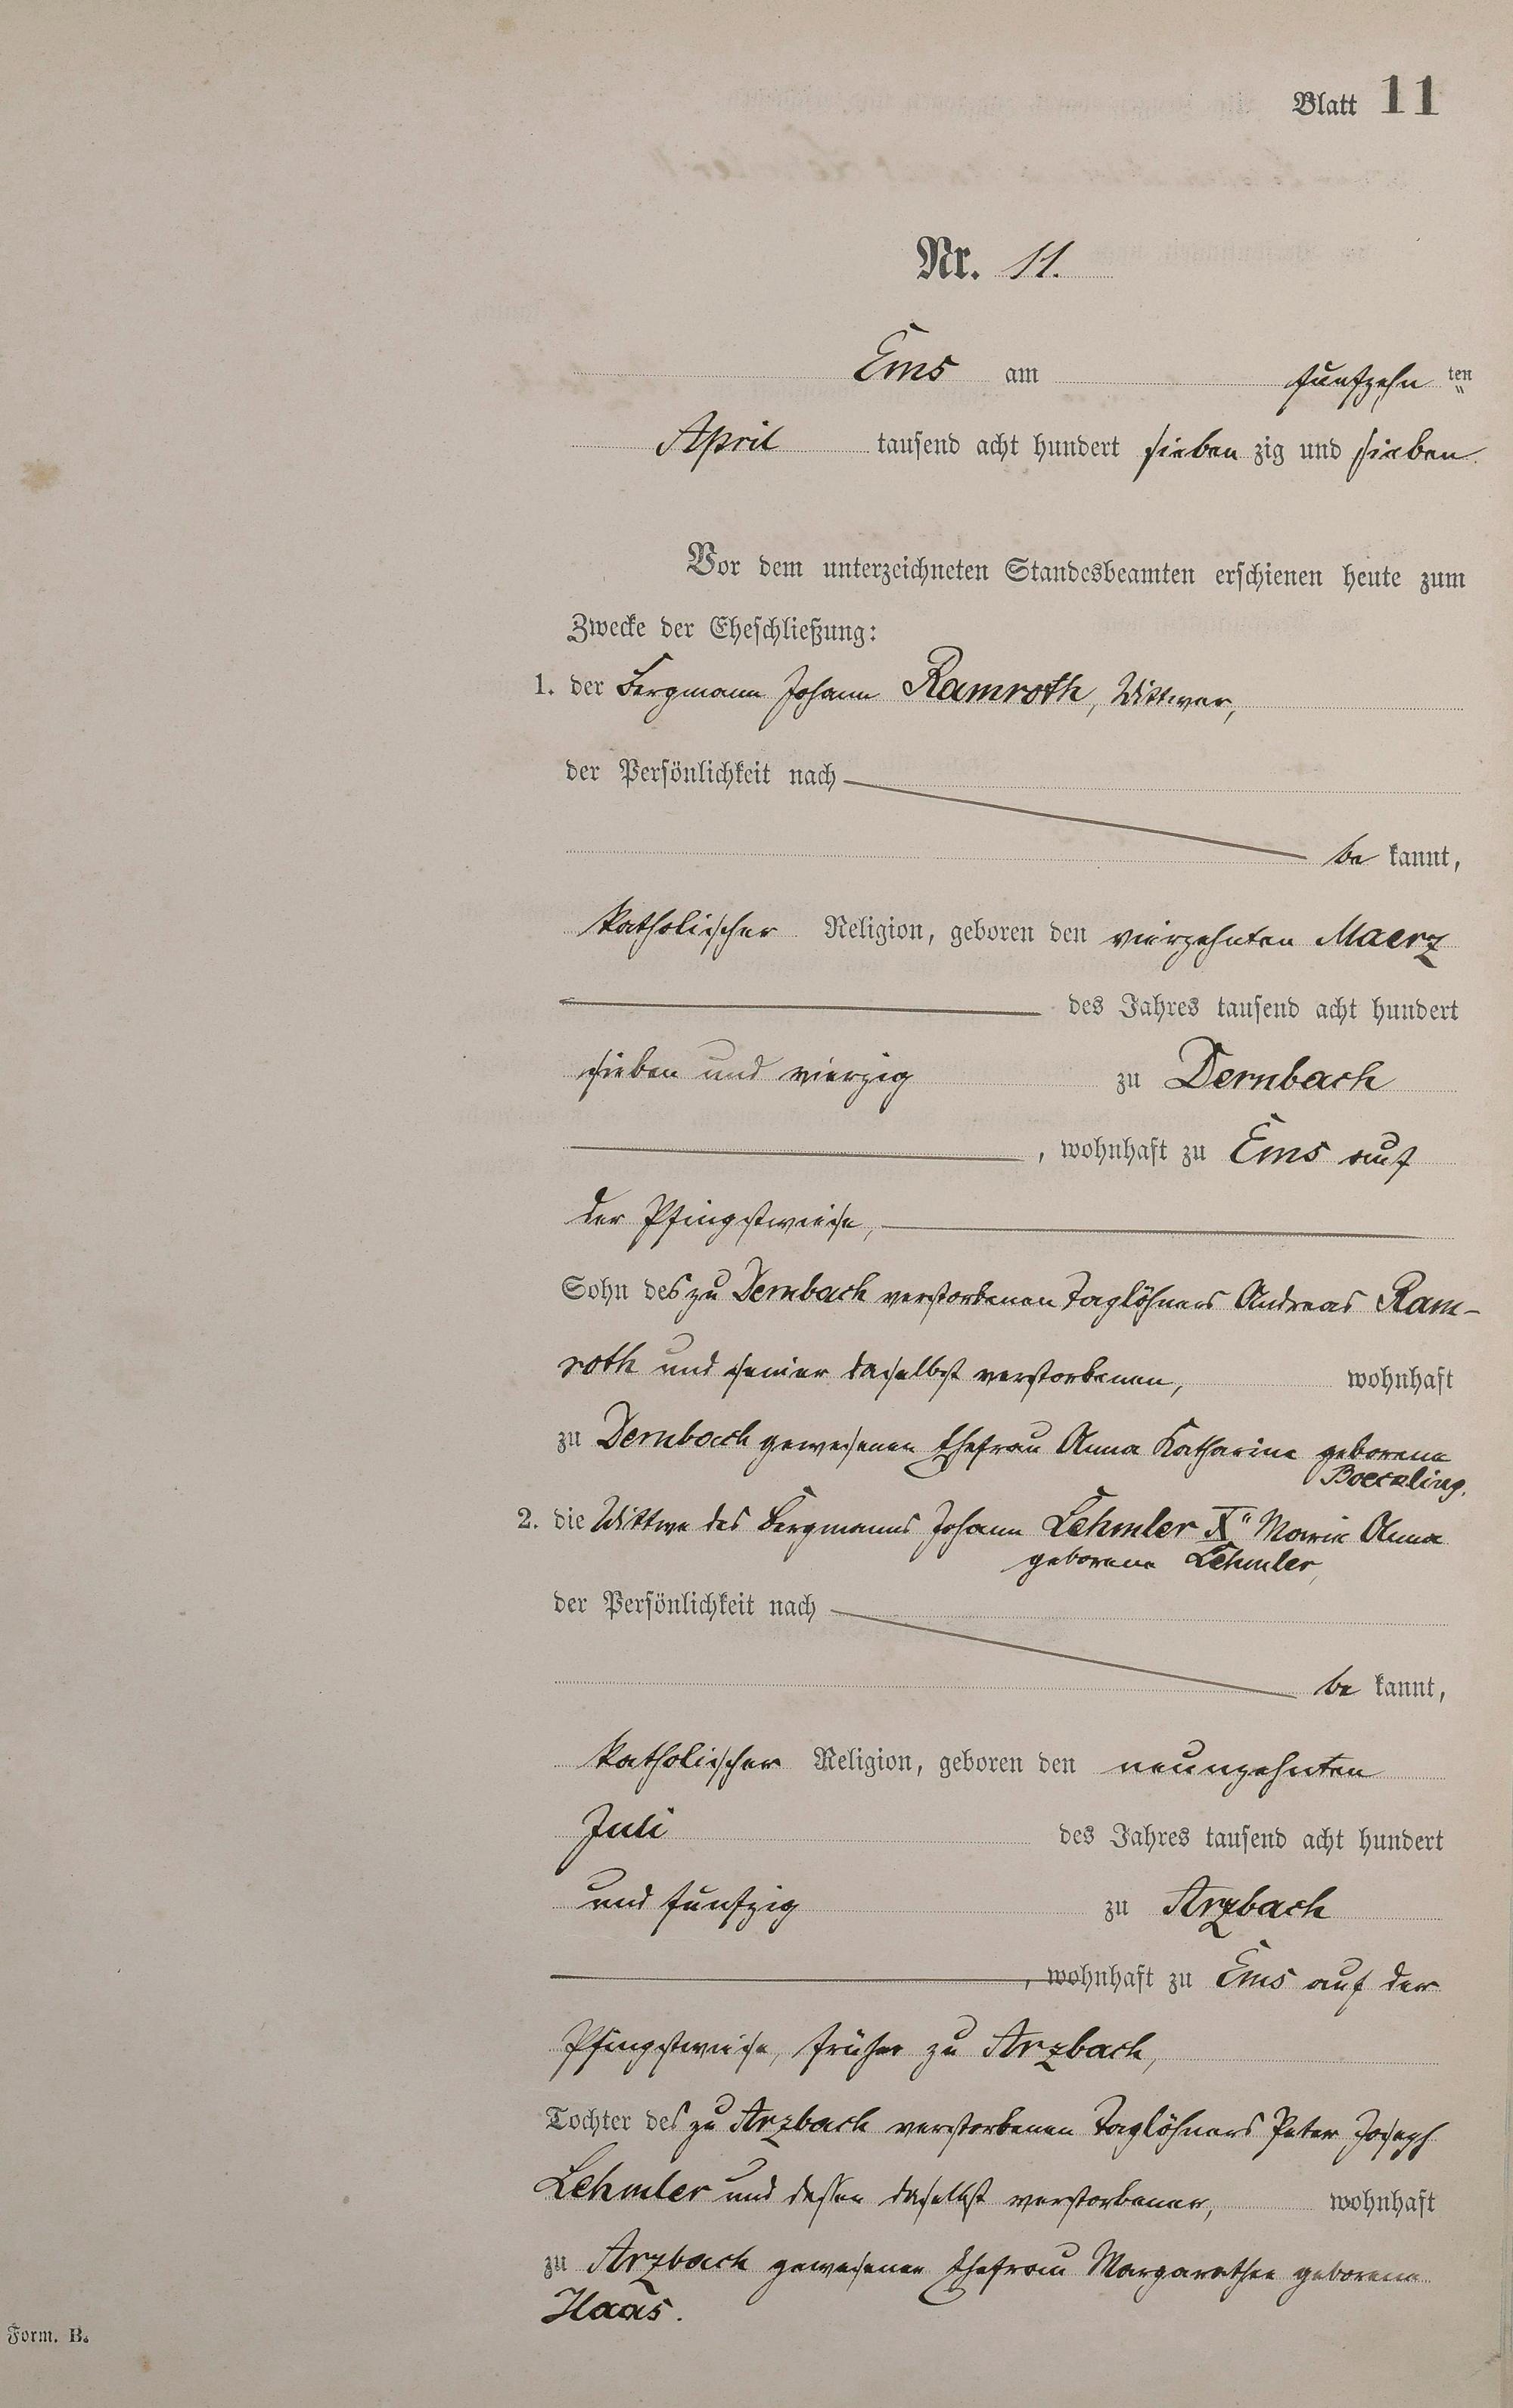 Blatt 11
Nr. 11.
Ems am fünfzehn ten
April tausend acht hundert sieben zig und sieben
Vor dem unterzeichneten Standesbeamten erschienen heute zum
Zwecke der Eheschließung:
1. der Bergmann Johann Ramroth, Wittwer,
der Persönlichkeit nach
be kannt,
katholischer Religion, geboren den vierzehnten Maerz
des Jahres tausend acht hundert
sieben und vierzig zu Dernbach
, wohnhaft zu Ems auf
der Pfingstwiese,
Sohn des zu Dernbach verstorbenen Taglöhners Andreas Ram-
roth und seiner daselbst verstorbenen, wohnhaft
zu Dernbach gewesenen Ehefrau Anna Katharina geborene
2. die Wittwe des Bergmanns Johann Lehmler X" Maria Anna
geborene Lehmler,
der Persönlichkeit nach
be kannt,
katholischer Religion, geboren den neunzehnten
Juli des Jahres tausend acht hundert
und fünfzig zu Arzbach
, wohnhaft zu Ems auf der
Pfingstwiese, früher zu Arzbach,
Tochter des zu Arzbach verstorbenen Taglöhners Peter Joseph
Lehmler und dessen daselbst verstorbener, wohnhaft
zu Arzbach gewesener Ehefrau Margarethe geborene
Haas.
Form. B.